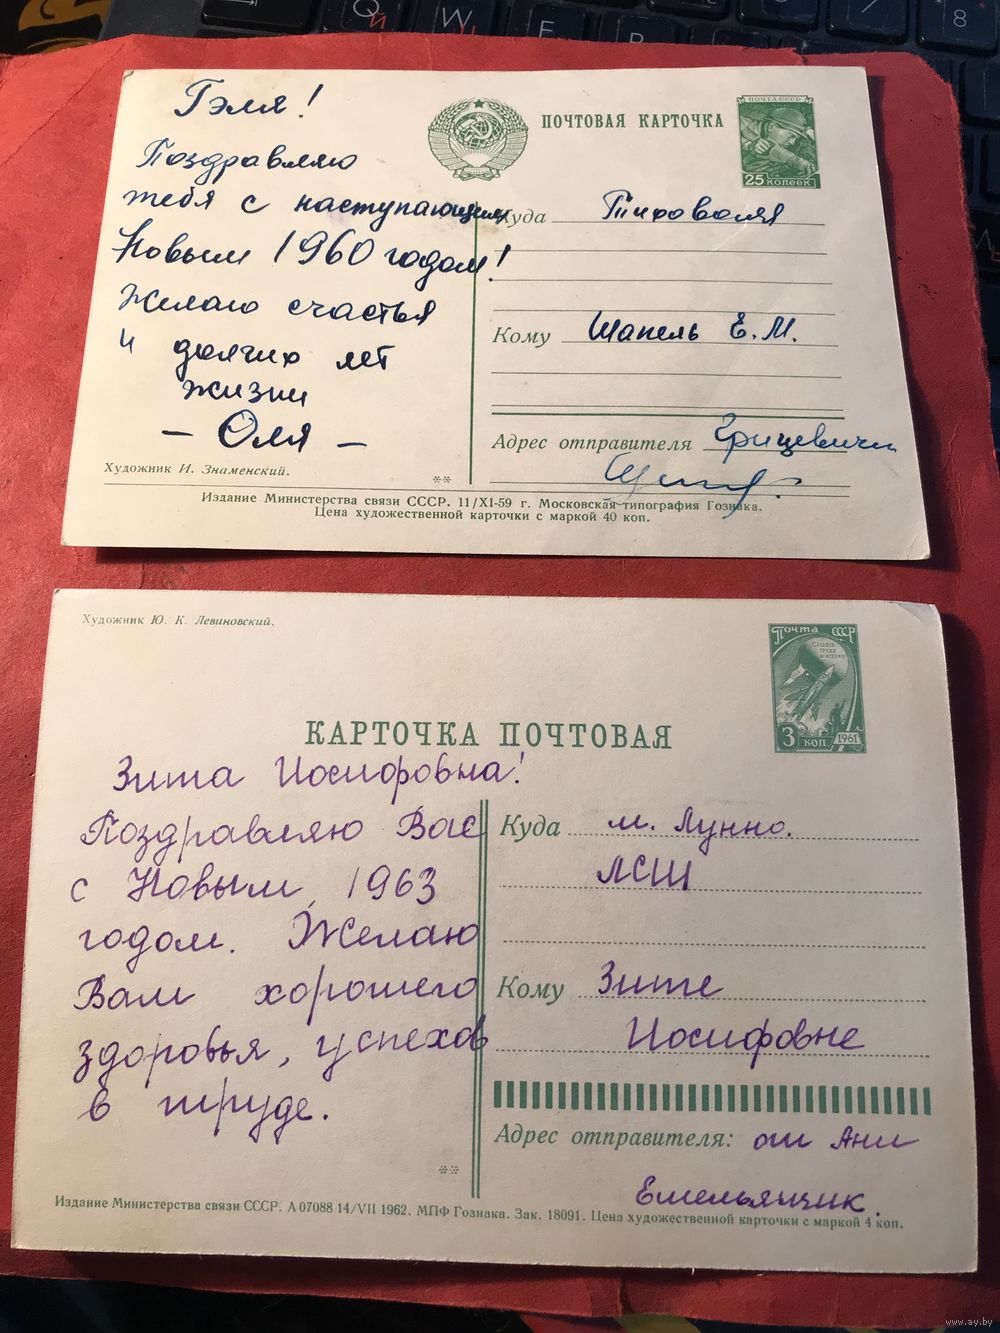 Гэля!
Поздравляю
тебя с наступающим
Новым 1960 годом!
Желаю счастья
и долгих лет
жизни
— Оля —
Художник И. Знаменский.
ПОЧТОВАЯ КАРТОЧКА
ПОЧТА СССР
25 КОПЕЕК
Куда
Кому Шапель Е. М.
Адрес отправителя Грицевичи
**
Издание Министерства связи СССР. 11/XI-59 г. Московская типография Гознака.
Цена художественной карточки с маркой 40 коп.
Художник Ю. К. Левиновский.
Почта СССР
СЛАВА
ТРУДУ
И НАУКЕ
3 коп 1961
КАРТОЧКА ПОЧТОВАЯ
Зита Иосифовна!
Поздравляю Вас
с Новым, 1963
годом. Желаю
Вам хорошего
здоровья, успехов
в труде.
Куда м. Лунно.
ЛСШ
Кому Зите
Иосифовне
Адрес отправителя: от Ани
Емельянчик.
**
Издание Министерства связи СССР. А 07088 14/VII 1962. МПФ Гознака. Зак. 18091. Цена художественной карточки с маркой 4 коп.
www.ay.by